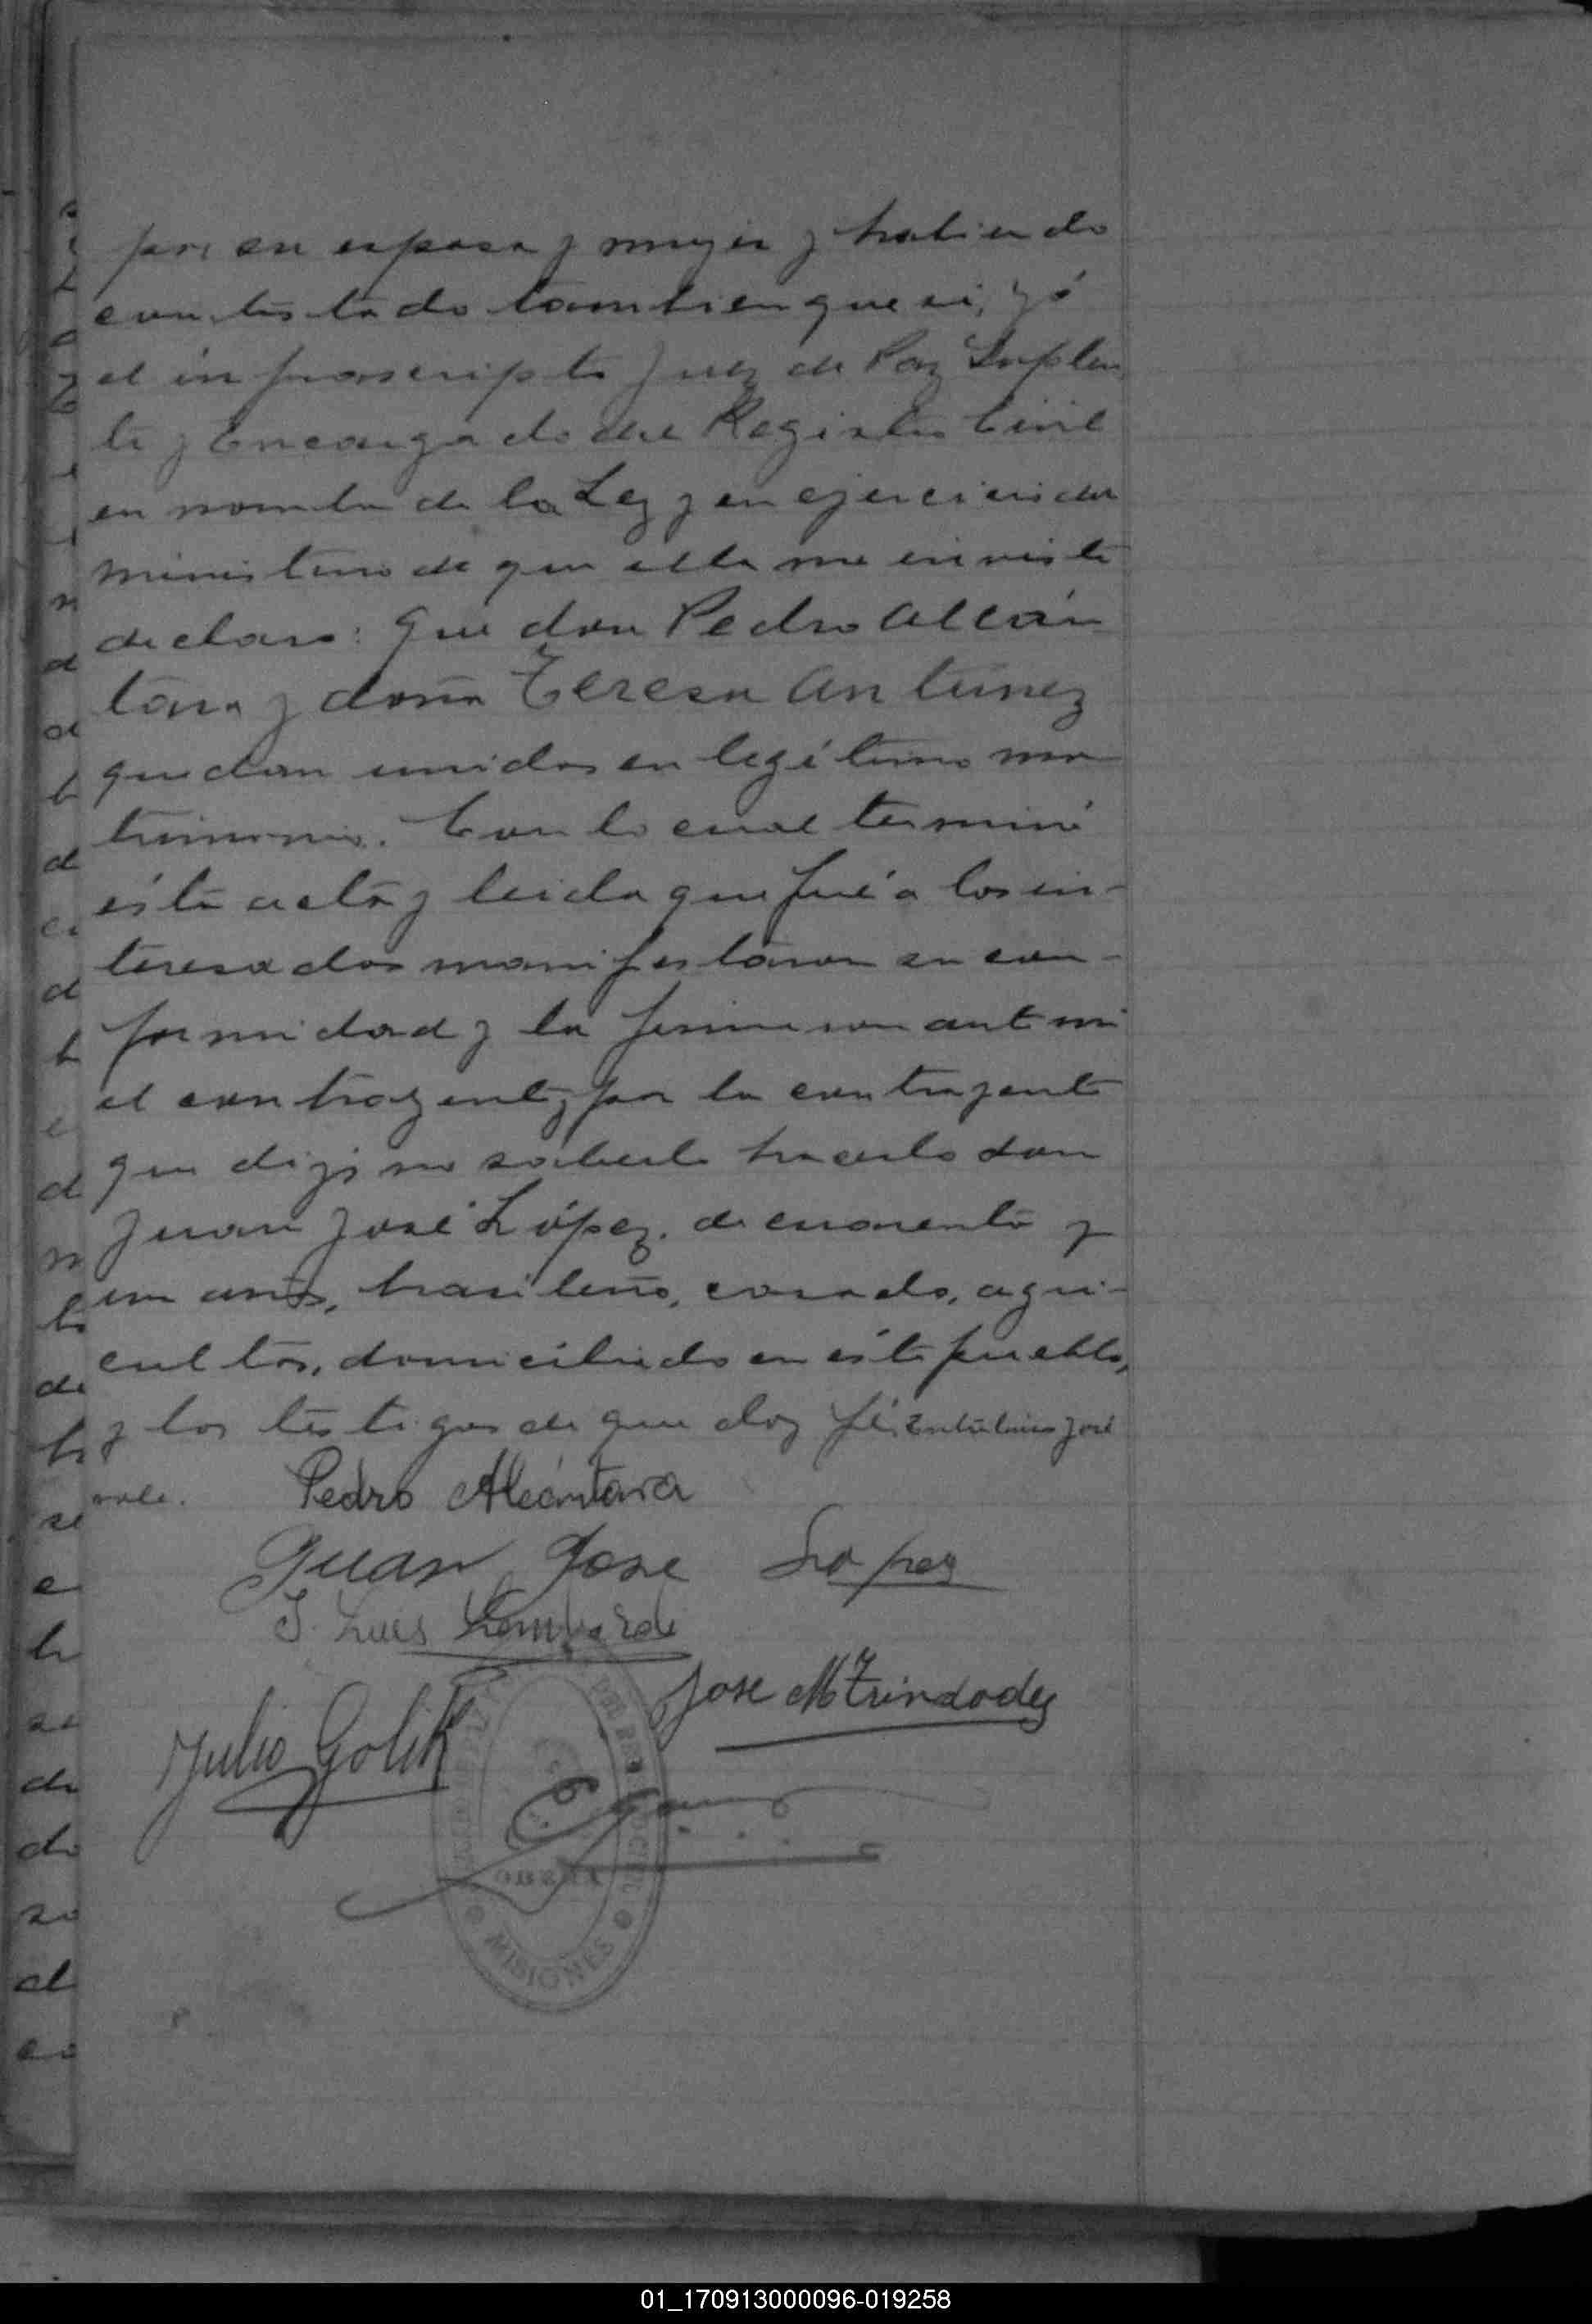 por su esposa y mujer y habiendo
contestado tambien que si, yó
el infrascripto Juez de Paz Suplen
te y Encargado del Registro Civil
en nombre de la Ley y en ejercicio del
ministerio de que ella me inviste
declaro: Que don Pedro Alcán
tara y doña Teresa Antunez
quedan unidos en legítimo ma
trimonio. Con lo cual terminó
ésta acta y leida que fué a los in-
teresados manifestaron su con-
formidad y la firmaron ante mi
el contrayente, por la contrayente
que dijo no saberlo hacerlo don
Juan José López, de cuarenta y
un años, brasileño, casado, agri-
cultor, domiciliado en éste pueblo,
y los testigos de que doy fé. Entre lineas José
vale.
Pedro Alcántara
Juan Jose Lopez
J. Luis Lombardi
Jose M Trindadez
Julio Golik
OBERA
MISIONES
01_170913000096-019258